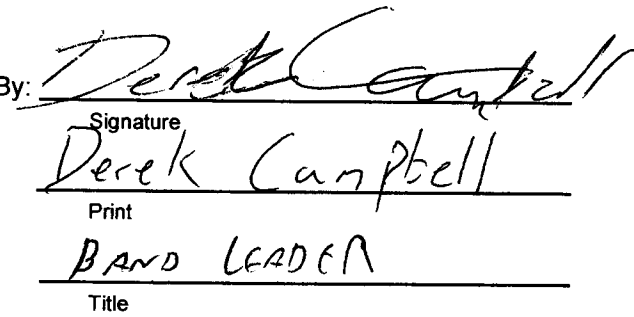 By: Derek Campbell
Signature
Derek Campbell
Print
BAND LEADER
Title